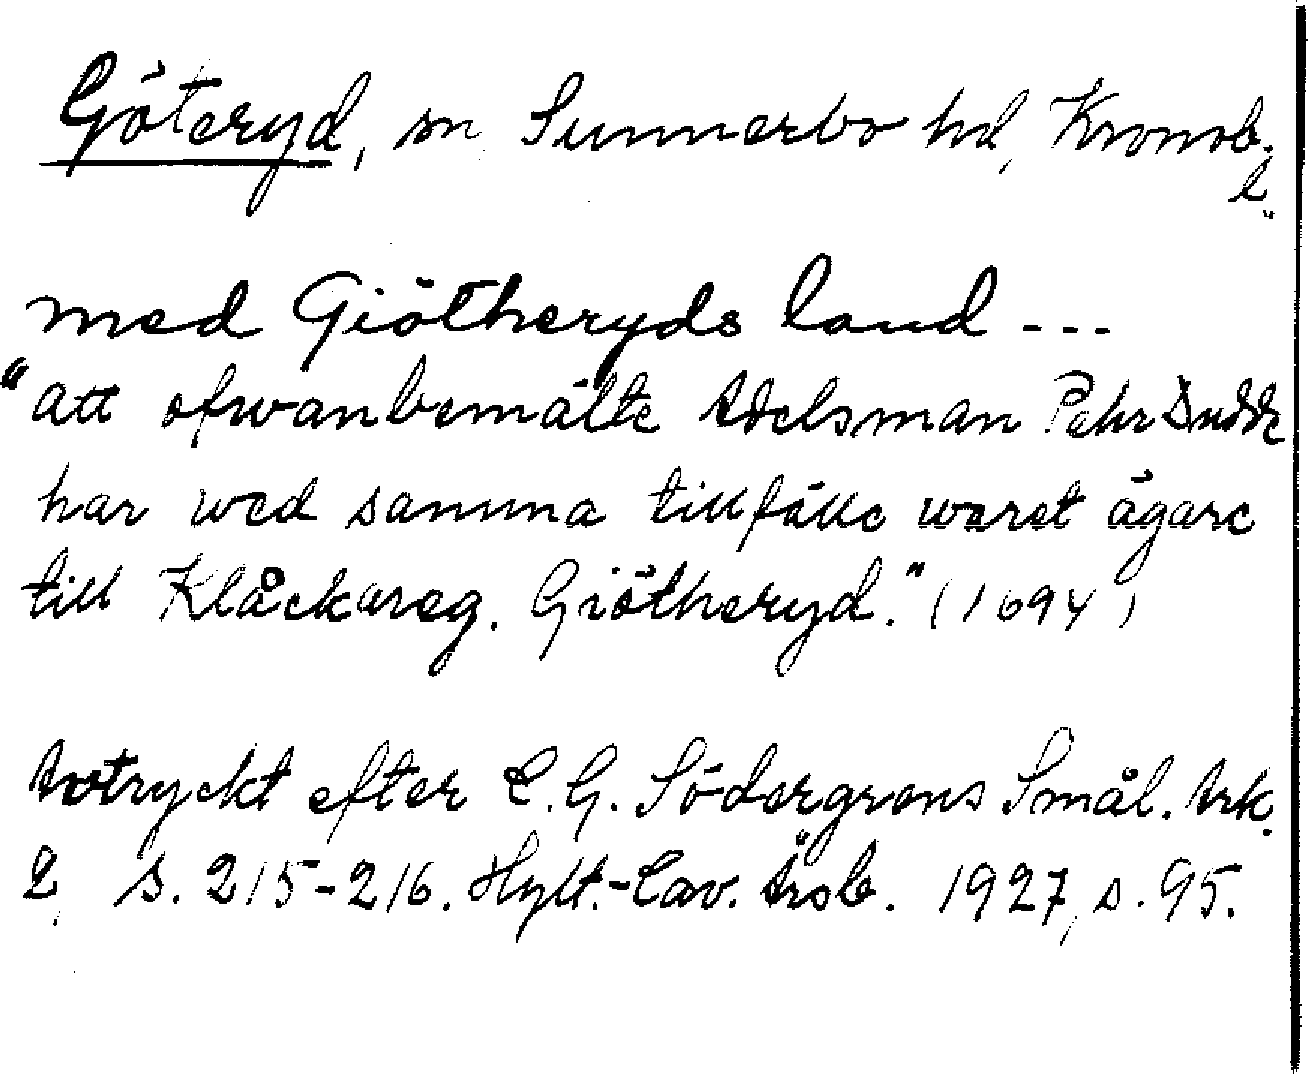 Göteryd, sn, Sunnerbo hd, Kronob.
l.
med Giötheryds land ---
"att ofwanbemälte Adelsman Pehr Dudde
har wed samma tillfälle waret ägare
till Klåckareg. Giötheryd." (1694)
Avtryckt efter L.G. Södergrens Smål. Ark.
2, s. 215-216. Hylt.-Cav. Årsb. 1927, s. 95.